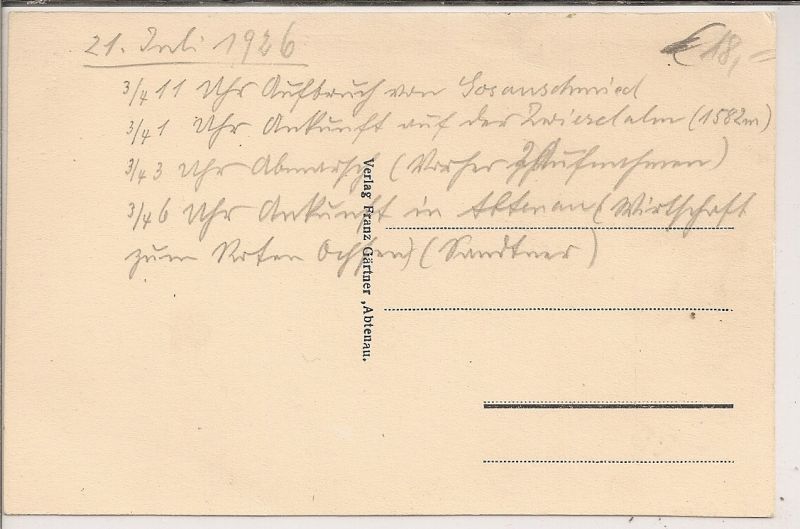 21. Juli 1926
€ 18,=
3/4 11 Uhr Aufbruch von Gosauschmied
3/4 1 Uhr Ankunft auf der Zwieselalm (1582m)
3/4 3 Uhr Abmarsch (Vorher 2 Aufnahmen)
3/4 6 Uhr Ankunft in Abtenau (Wirtschaft
zum Roten Ochsen) (Sandtner)
Verlag Franz Gärtner, Abtenau.